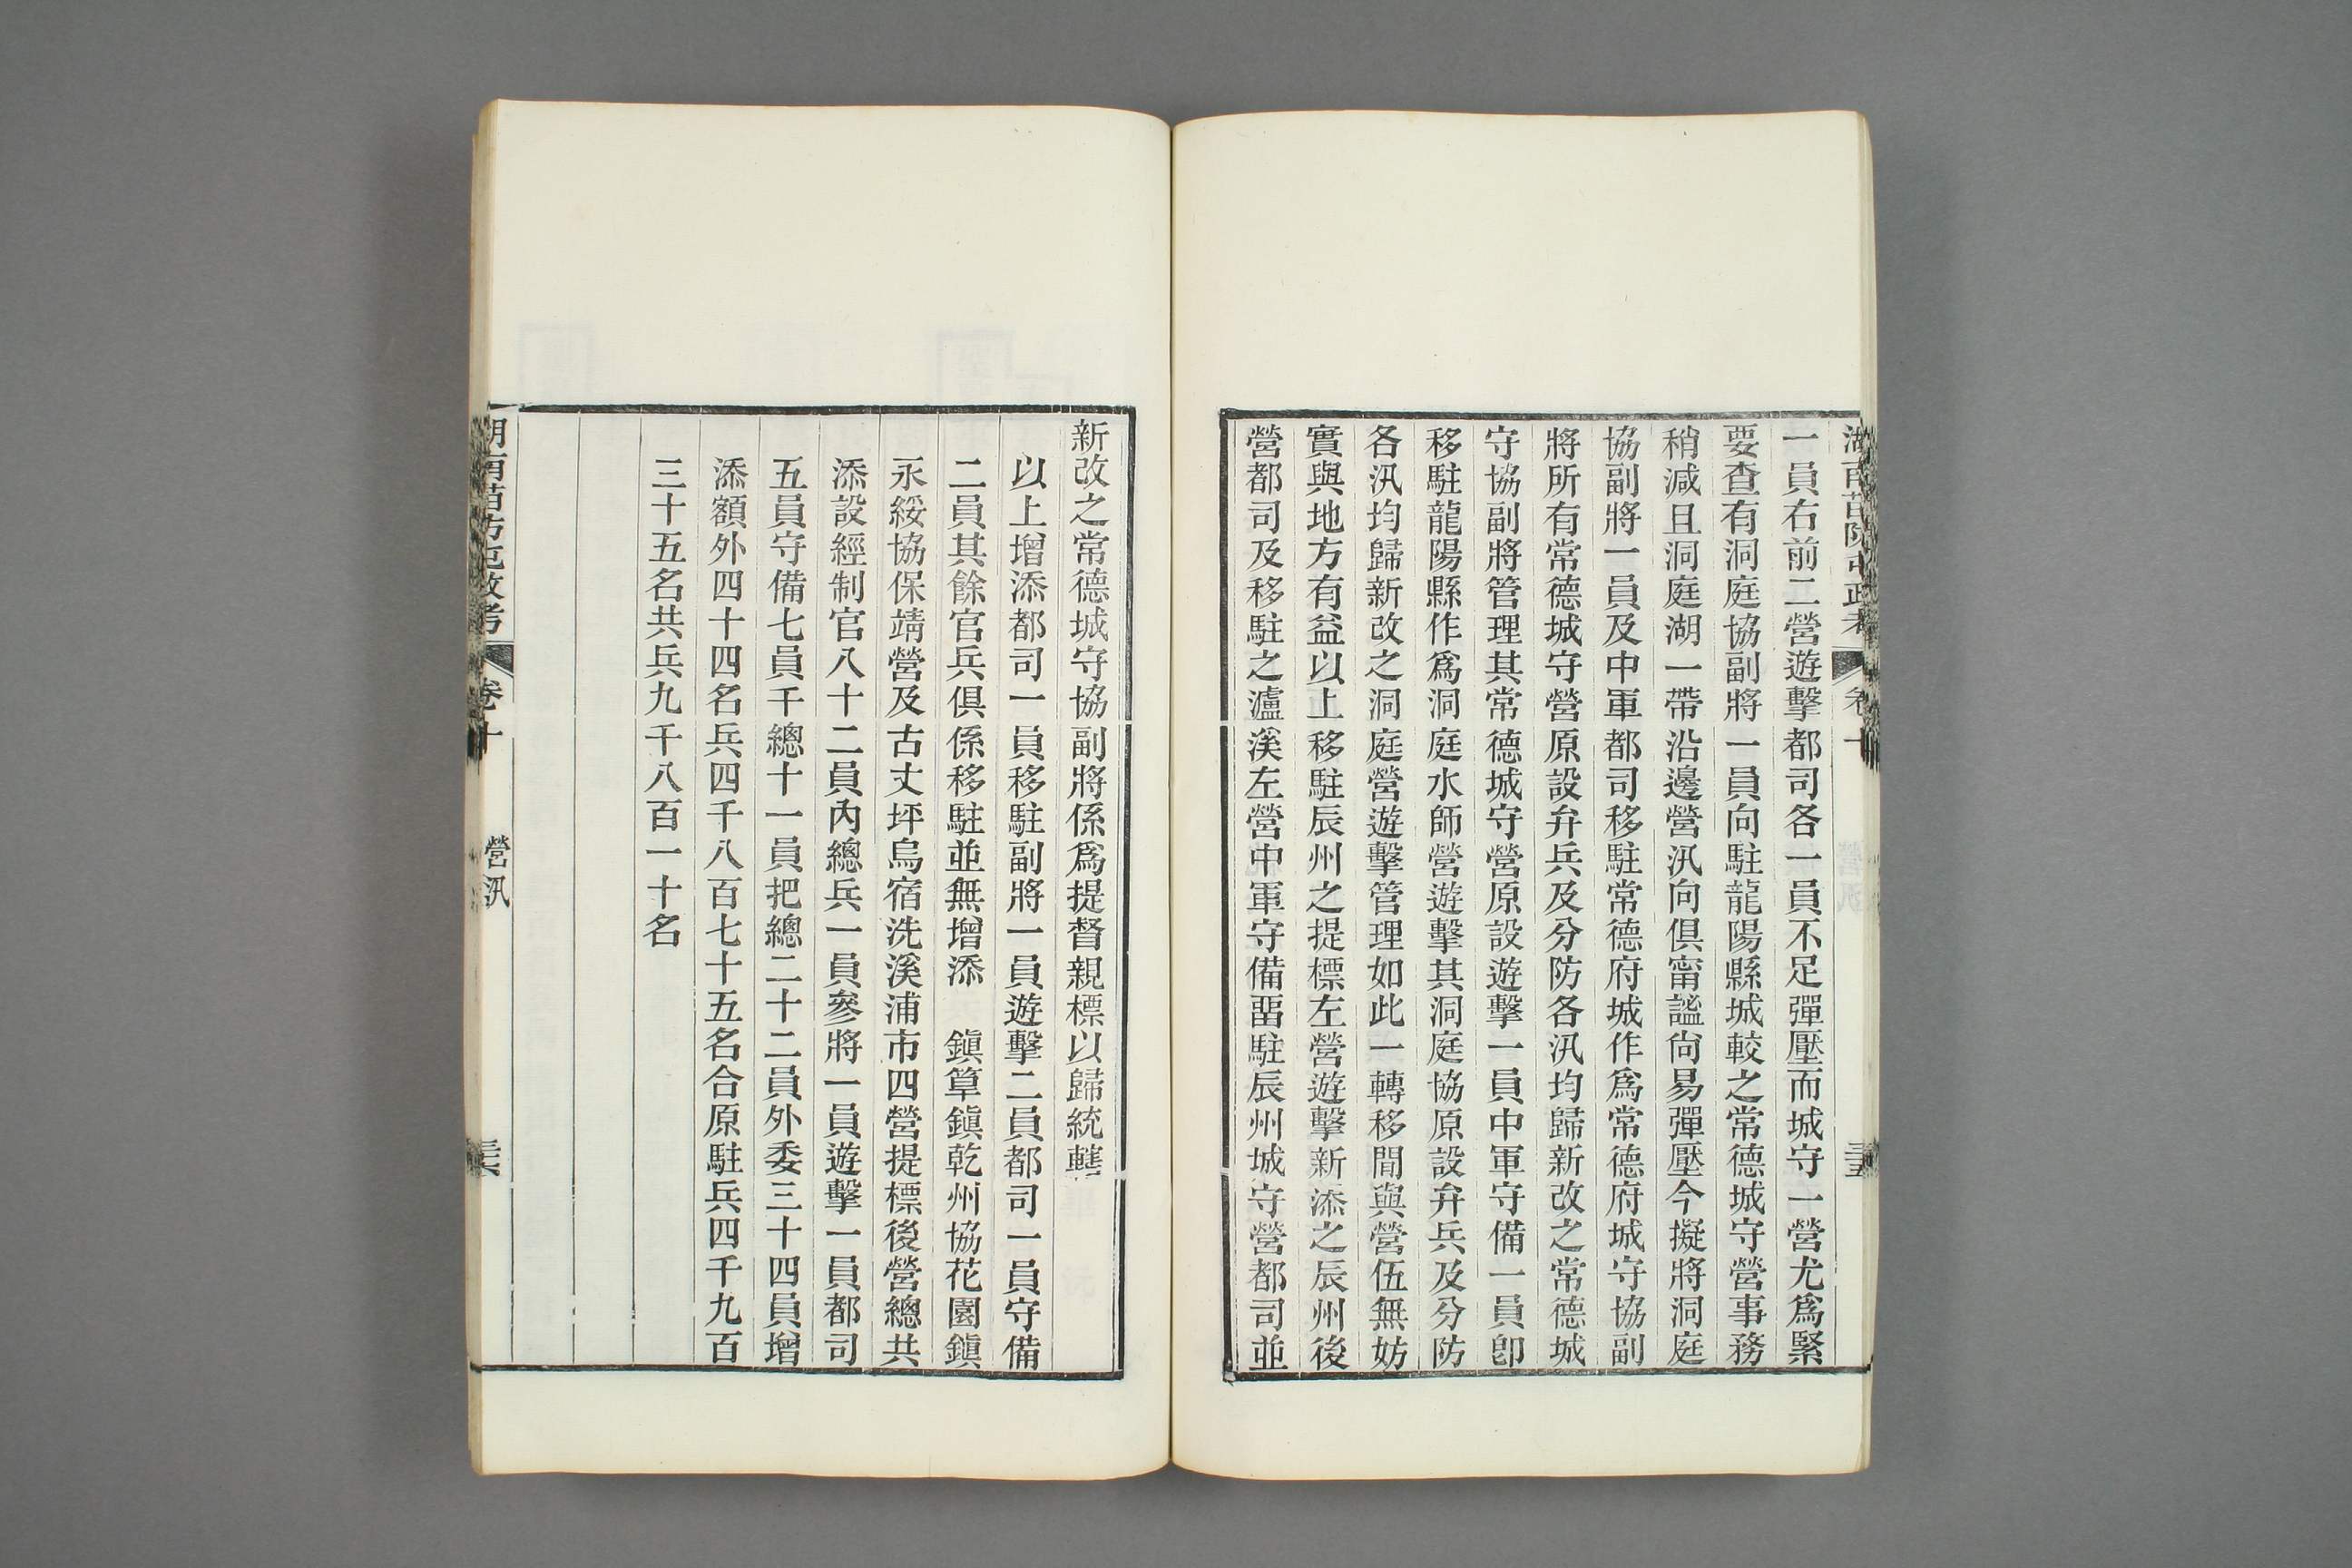 一員右前二營遊擊都司各一員不足彈壓而城守一營尤爲緊
要查有洞庭協副將一員向駐龍陽縣城較之常德城守營事務
稍減且洞庭湖一帶沿邊營汛向俱甯謐尙易彈壓今擬將洞庭
協副將一員及中軍都司移駐常德府城作爲常德府城守協副
將所有常德城守營原設弁兵及分防各汛均歸新改之常德城
守協副將管理其常德城守營原設遊擊一員中軍守備一員卽
移駐龍陽縣作爲洞庭水師營遊擊其洞庭協原設弁兵及分防
各汛均歸新改之洞庭營遊擊管理如此一轉移閒與營伍無妨
實與地方有益以上移駐辰州之提標左營遊擊新添之辰州後
營都司及移駐之瀘溪左營中軍守備畱駐辰州城守營都司並
新改之常德城守協副將係爲提督親標以歸統轄
以上增添都司一員移駐副將一員遊擊二員都司一員守備
二員其餘官兵俱係移駐並無增添　鎭筸鎭乾州協花園鎭
永綏協保靖營及古丈坪烏宿洗溪浦市四營提標後營總共
添設經制官八十二員內總兵一員參將一員遊擊一員都司
五員守備七員千總十一員把總二十二員外委三十四員增
添額外四十四名兵四千八百七十五名合原駐兵四千九百
三十五名共兵九千八百一十名
湖南苗防屯政考
卷十
營汛